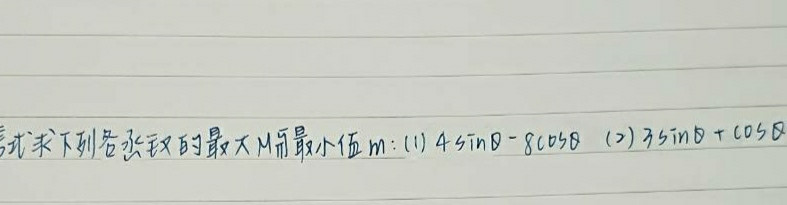 式求下列各函数的最大M和最小值m:(1) 4sinθ-8cosθ (2) 3sinθ+cosθ